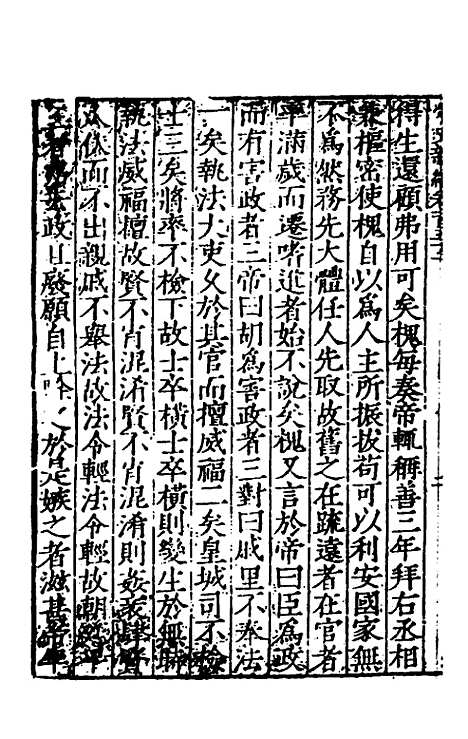 得生還顧弗用可矣槐每奏帝輒稱善三年拜右丞相
兼樞密使槐自以為人主所振拔苟可以利安國家無
不為然務先大體任人先取故舊之在疏遠者在官者
率滿歲而遷嗜進者始不說矣槐又言於帝曰臣為政
而有害政者三帝曰胡為害政者三對曰戚里不奉法
一矣執法大吏久於其官而擅威福二矣皇城司不檢
士三矣將率不檢下故士卒橫士卒橫則變生於無聊
執法威福擅故賢不肖混淆賢不肖混淆則姦邪肆賢
人伏而不出親戚不舉法故法令輕法令輕故朝廷卑
政且廢願自上除之於是嫉之者滋甚帝年